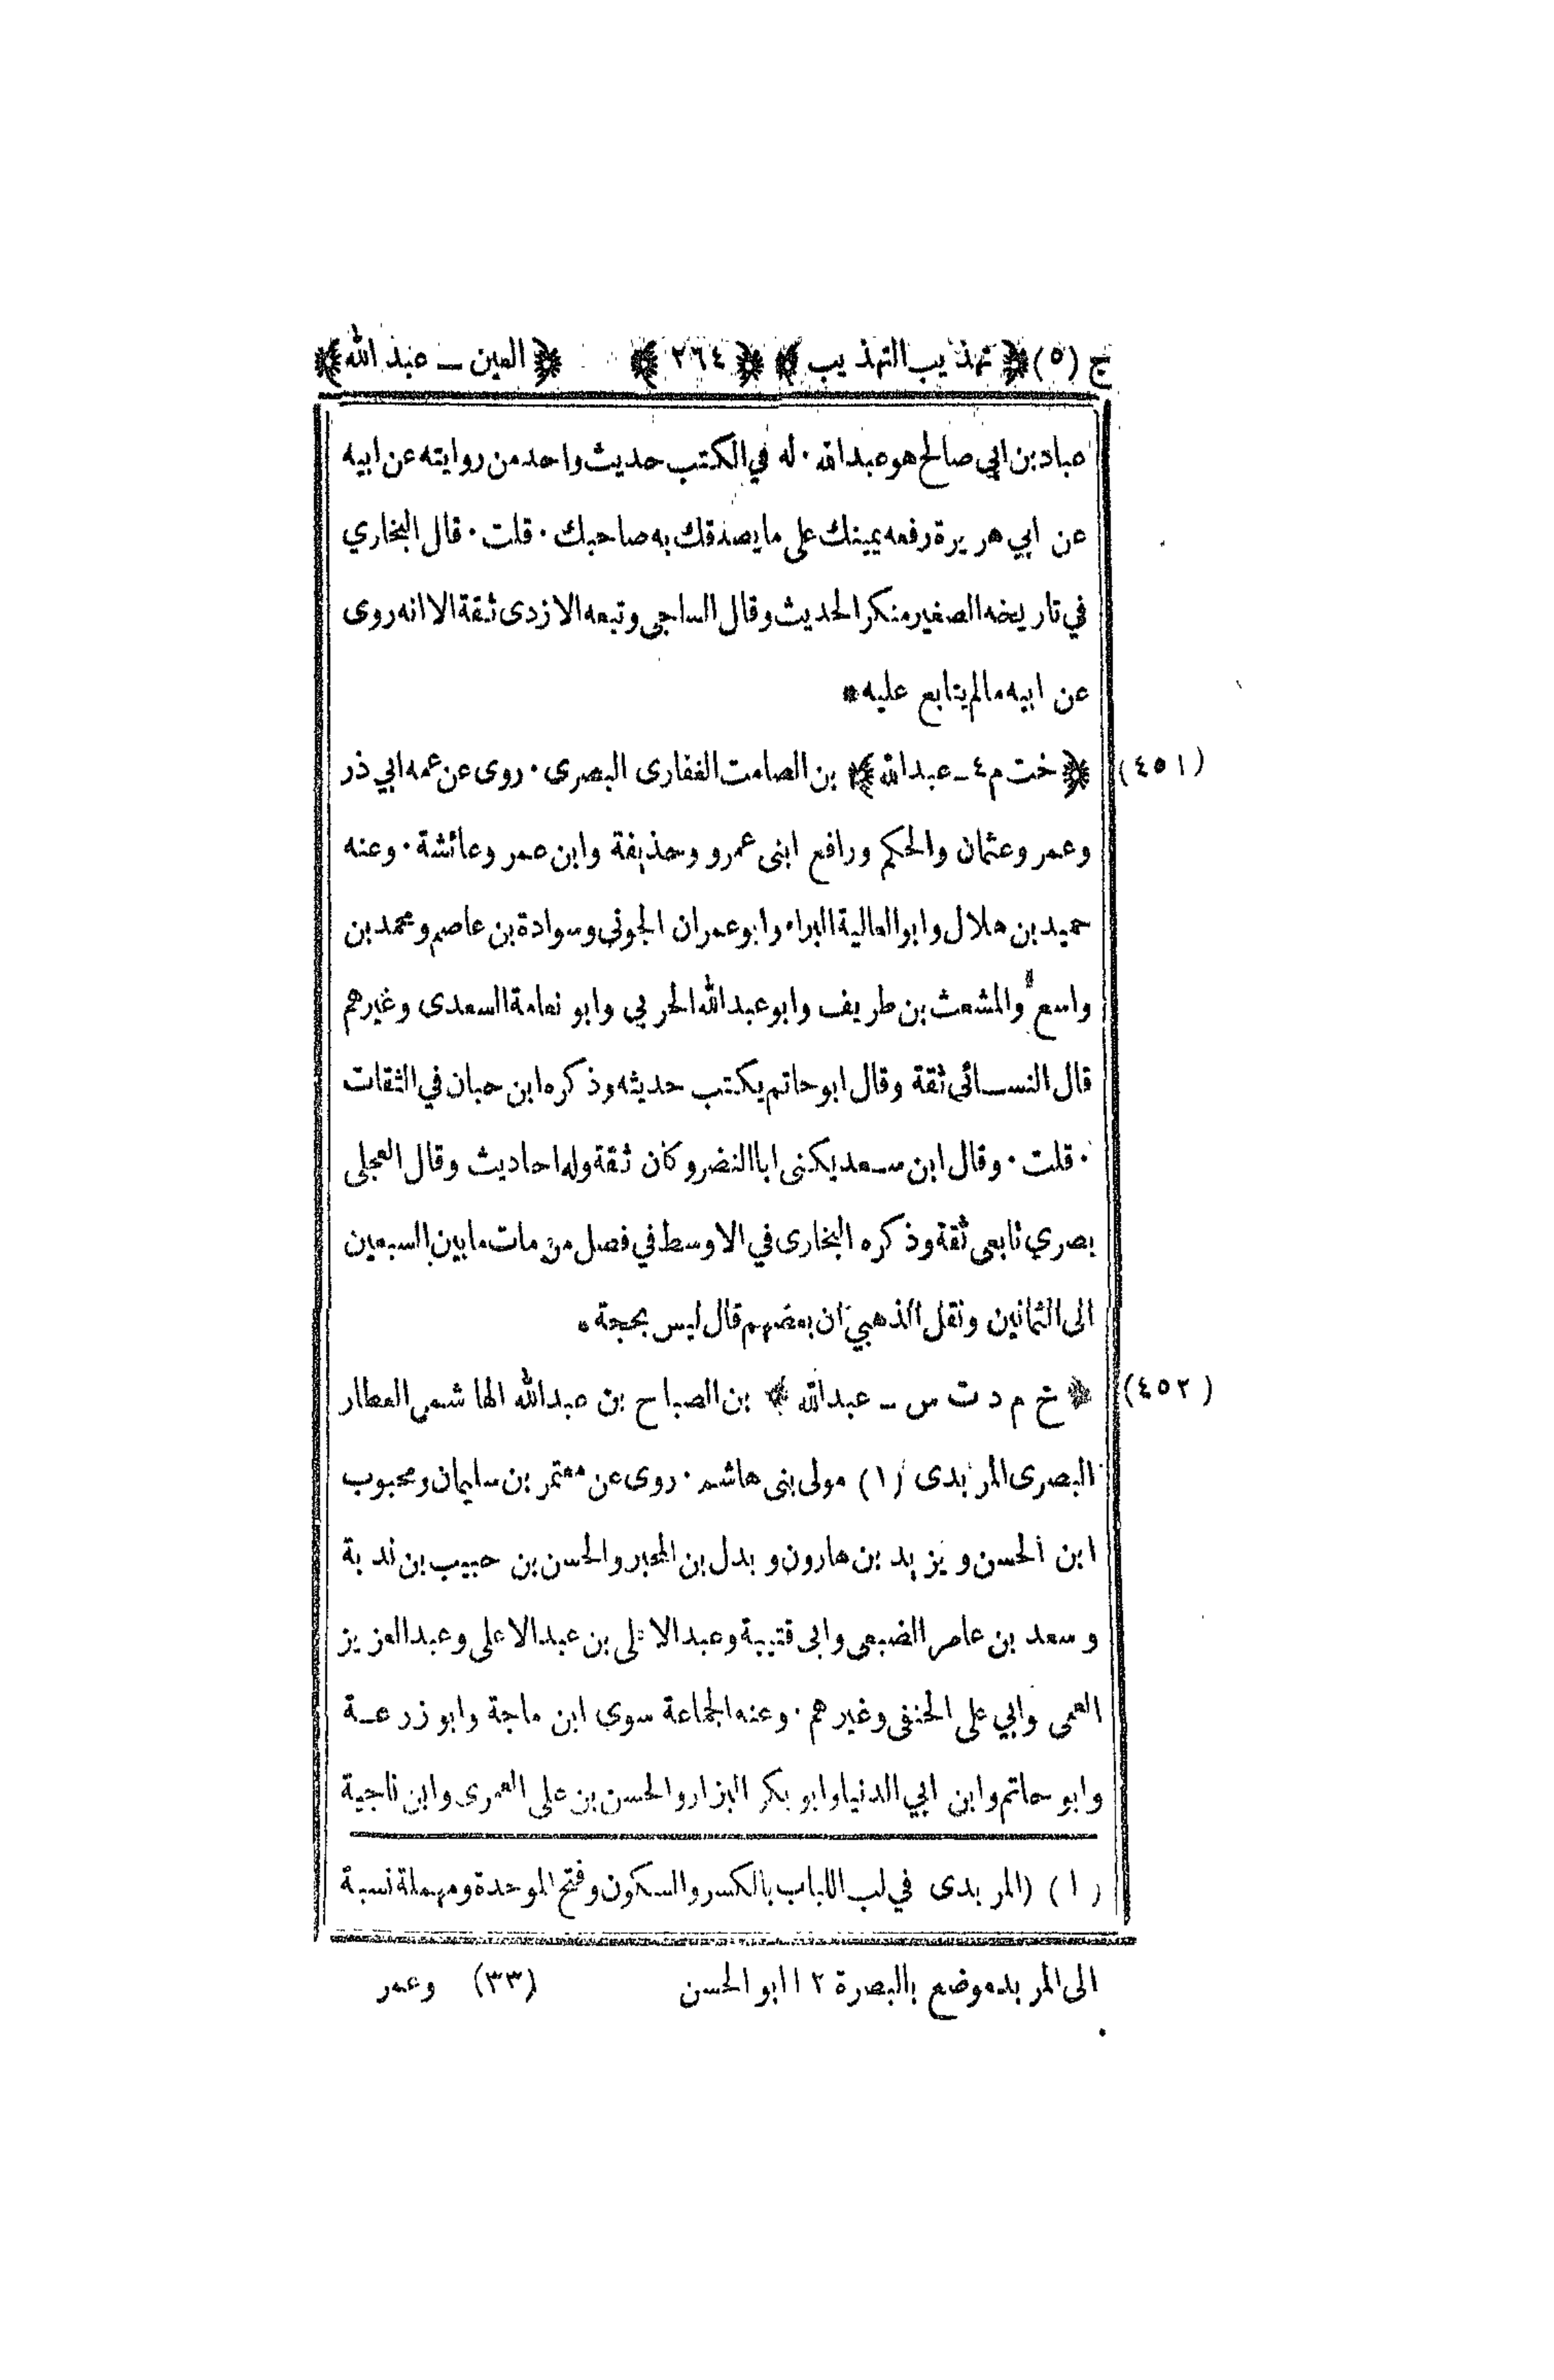 ج (٥) ﴿ تهذيب التهذيب ﴾ ﴿ ٢٦٤ ﴾ ﴿ العين ـ عبد الله ﴾
عباد بن ابي صالح هو عبد الله ٠ له في الكتب حديث واحد من روايته عن ابيه
عن ابي هريرة رفعه يمينك على ما يصدقك به صاحبك ٠ قلت ٠ قال البخاري
في تاريخه الصغير منكر الحديث وقال الساجى وتبعه الازدى ثقة الا انه روى
عن ابيه مالم يتابع عليه *
(٤٥١) ﴿ خت م ٤ ـ عبد الله ﴾ بن الصامت الغفارى البصرى ٠ روى عن عمه ابي ذر
وعمر وعثمان والحكم ورافع ابنى عمرو وحذيفة وابن عمر وعائشة ٠ وعنه
حميد بن هلال وابو العالية البراء وابو عمران الجونى وسوادة بن عاصم ومحمد بن
واسع والمشعث بن طريف وابو عبد الله الحربي وابو نعامة السعدى وغيرهم
قال النسـائى ثقة وقال ابو حاتم يكتب حديثه وذكره ابن حبان في الثقات
٠ قلت ٠ وقال ابن سـعد يكنى ابا النضر وكان ثقة وله احاديث وقال العجلى
بصري تابعى ثقة وذكره البخارى في الاوسط في فصل من مات ما بين السبعين
الى الثمانين ونقل الذهبي ان بعضهم قال ليس بحجة *
(٤٥٢) ﴿ خ م د ت س ـ عبد الله ﴾ بن الصباح بن عبد الله الهاشمى العطار
البصرى المربدى (١) مولى بنى هاشم ٠ روى عن معتمر بن سليمان ومحبوب
ابن الحسن ويزيد بن هارون وبدل بن المحبر والحسن بن حبيب بن ندبة
وسعد بن عامر الضبعى وابى قتيبة وعبد الاعلى بن عبد الاعلى وعبد العزيز
العمى وابي على الحنفى وغيرهم ٠ وعنه الجماعة سوى ابن ماجة وابو زرعـة
وابو حاتم وابن ابي الدنيا وابو بكر البزار والحسن بن على العمرى وابن ناجية
(١) (المربدى في لب اللباب بالكسر والسكون وفتح الموحدة ومهملة نسبة
الى المربد موضع بالبصرة ١٢ ابو الحسن (٣٣) وعمر